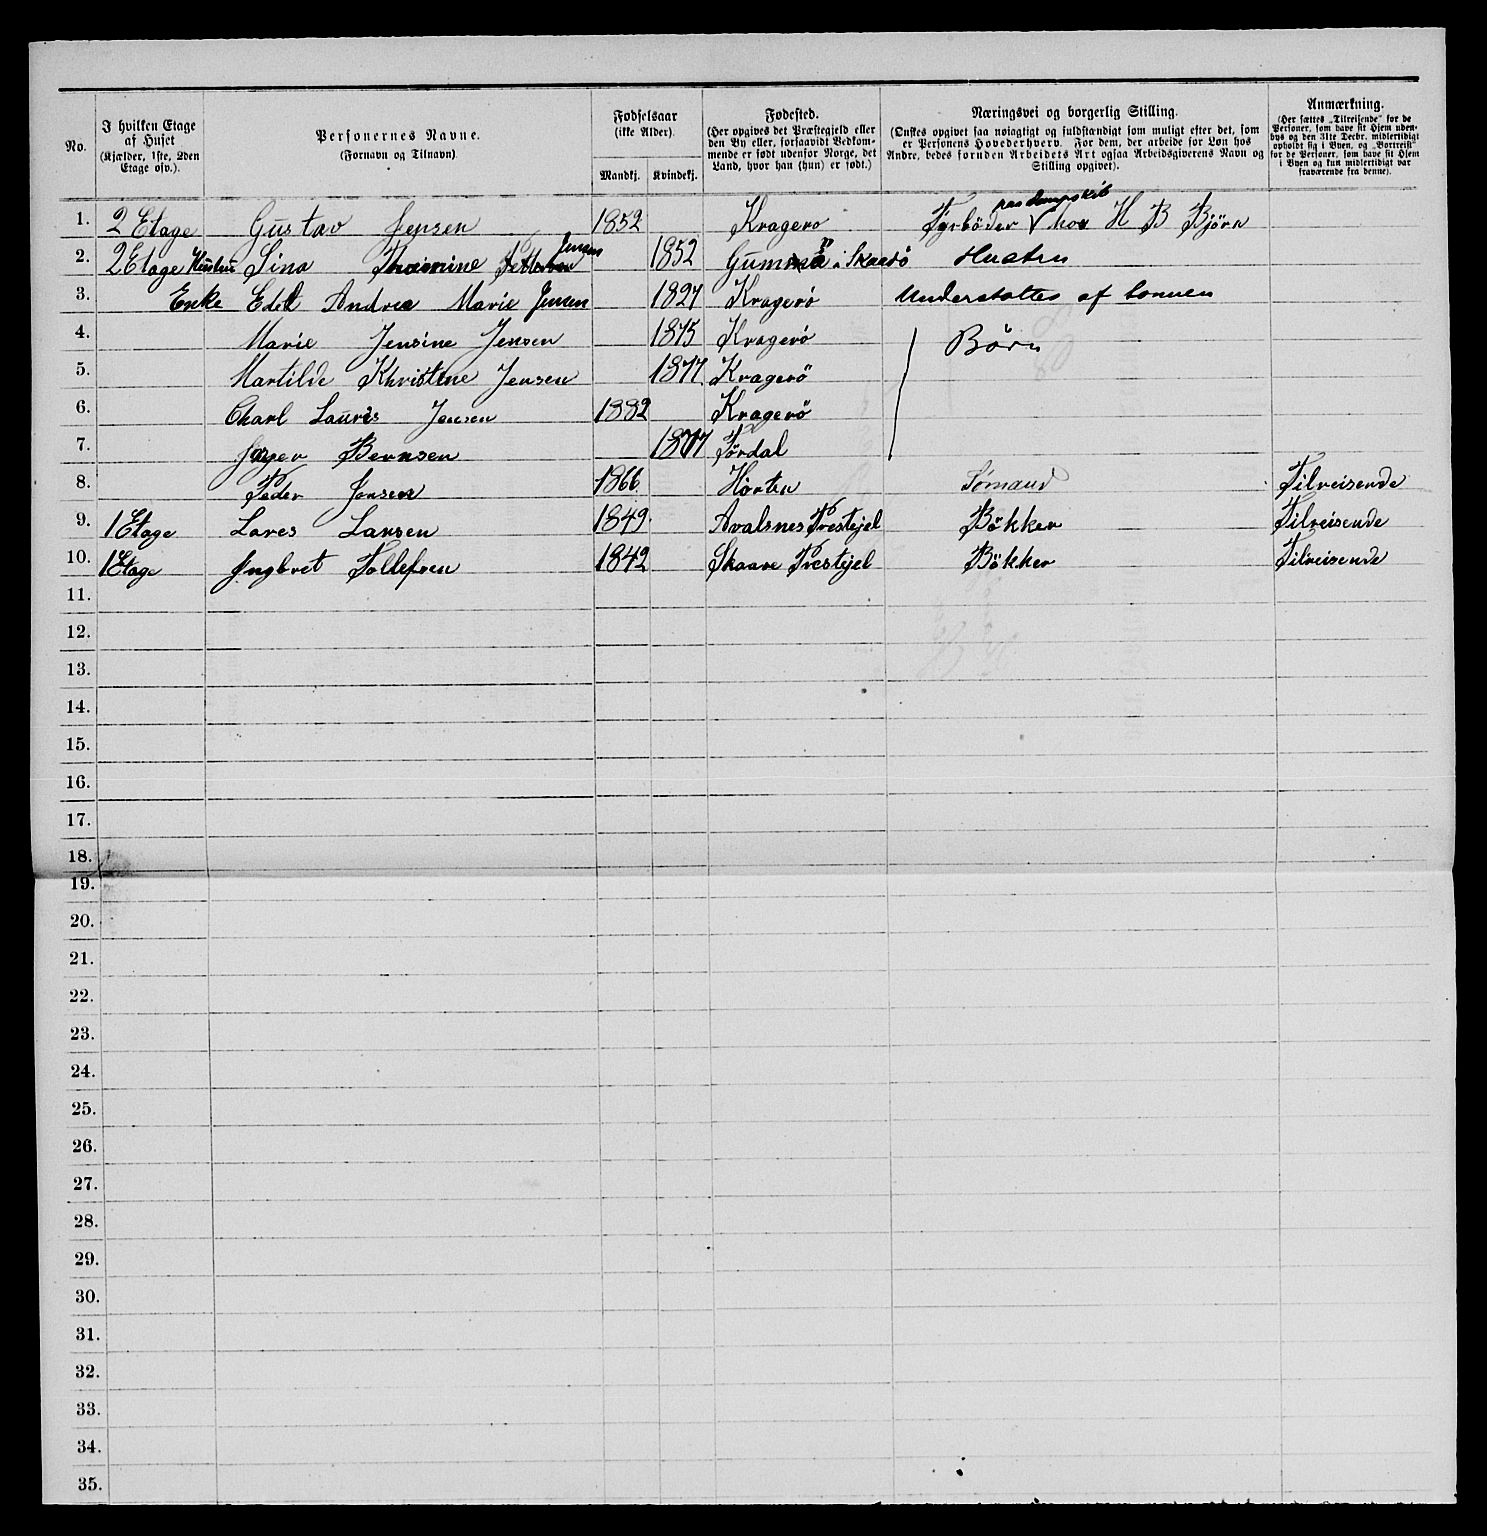 No.
I hvilken Etage af Huset (Kjælder, 1ste, 2den Etage osv.).
Personernes Navne. (Fornavn og Tilnavn)
Fødselsaar (ikke Alder). Mandkj. Kvindekj.
Fødested. (Her opgives det Præstegjeld eller den By eller, forsaavidt Vedkommende er født udenfor Norge, det Land, hvor han (hun) er født.)
Næringsvei og borgerlig Stilling. (Ønskes opgivet saa nøiagtigt og fuldstændigt som muligt efter det, som er Personens Hovederhverv. For dem, der arbeide for Løn hos Andre, bedes foruden Arbeidets Art ogsaa Arbeidsgiverens Navn og Stilling opgivet).
Anmærkning. (Her sættes „Tilreisende" for de Personer, som have sit Hjem udenbys og den 31te Decbr. midlertidigt opholdt sig i Byen, og „Bortreist" for de Personer, som have sit Hjem i Byen og kun midlertidigt var fraværende fra denne).
1. 2 Etage Gustav Jensen 1852 Kragerø Fyrbøder paa dampskib hos H B Bjørn
2. 2 Etage Hustru Sina Thomine Jensen 1852 i Skaatø Hustru
3. Enke Andrea Marie Jensen 1827 Kragerö Understøttes af Sønnen
4. Marie Jensine Jensen 1875 Kragerö Børn
5. Martilde Khristine Jensen 1877 Kragerö
6. Charl Lauris Jensen 1882 Kragerö
7. Bernsen 1877 Førdal
8. Peder Jensen 1866 Horten Sømand Tilreisende
9. 1 Etage Lares Larsen 1849 Avalsnes Prestejel Bökker Tilreisende
10. 1 Etage Ingbret Tollefsen 1842 Skaare Prestejel Bökker Tilreisende
11.
12.
13.
14.
15.
16.
17.
18.
19.
20.
21.
22.
23.
24.
25.
26.
27.
28.
29.
30.
31.
32.
33.
34.
35.